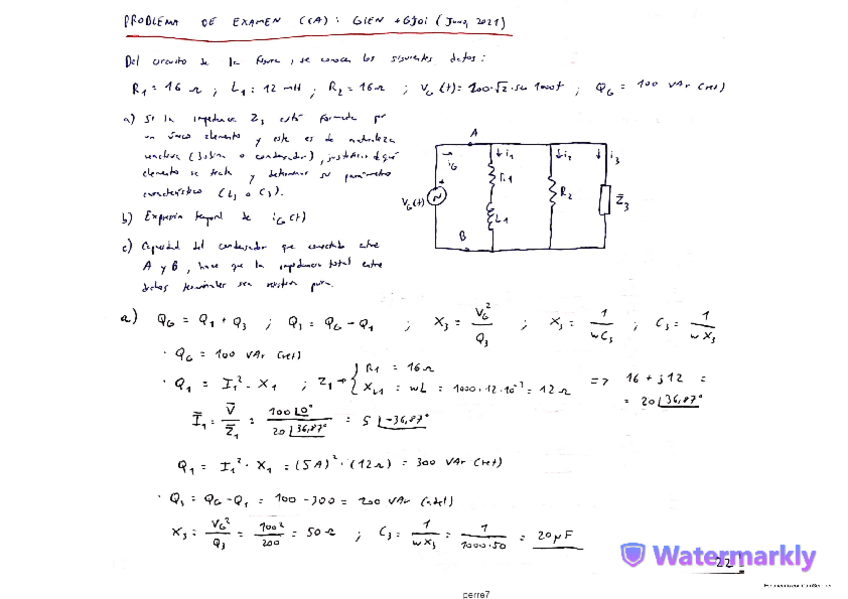 PROBLEMA DE EXAMEN (CA): GIEN + GJOI (Junio, 2021)
Del circuito de la figura, se conocen los siguientes datos:
R1 = 16 Ω ; L1 = 12 mH ; R2 = 16 Ω ; VG(t) = 100·√2·sen 1000t ; QG = 100 VAr (ret)
a) Si la impedancia Z3 está formada por
un único elemento y este es de naturaleza
reactiva (bobina o condensador), justificar de qué
elemento se trata y determinar su parámetro
característico (L3 o C3).
b) Expresión temporal de iG(t)
c) Capacidad del condensador que conectado entre
A y B, hace que la impedancia total entre
dichos terminales sea resistiva pura.
A
iG
i1
i2
i3
+
VG(t)
R1
L1
R2
Z̄3
B
a) QG = Q1 + Q3 ; Q3 = QG - Q1 ; X3 = VG²/Q3 ; X3 = 1/wC3 ; C3 = 1/wX3
· QG = 100 VAr (ret)
· Q1 = I1²·X1 ; Z1 → { R1 = 16 Ω
XL1 = wL = 1000·12·10⁻³ = 12 Ω => 16 + j12 =
= 20∠36,87°
Ī1 = V̄/Z̄1 = 100∠0°/20∠36,87° = 5∠-36,87°
Q1 = I1²·X1 = (5A)²·(12Ω) = 300 VAr (ret)
· Q3 = QG - Q1 = 100 - 300 = 200 VAr (adel)
X3 = VG²/Q3 = 100²/200 = 50 Ω ; C3 = 1/wX3 = 1/1000·50 = 20 μF
Watermarkly
22
perre7